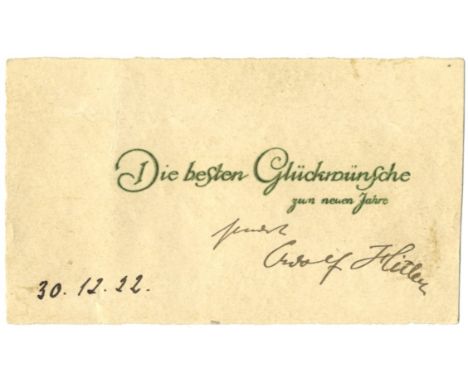 Die besten Glückwünsche
zum neuen Jahre
sendet
Adolf Hitler
30. 12. 22.